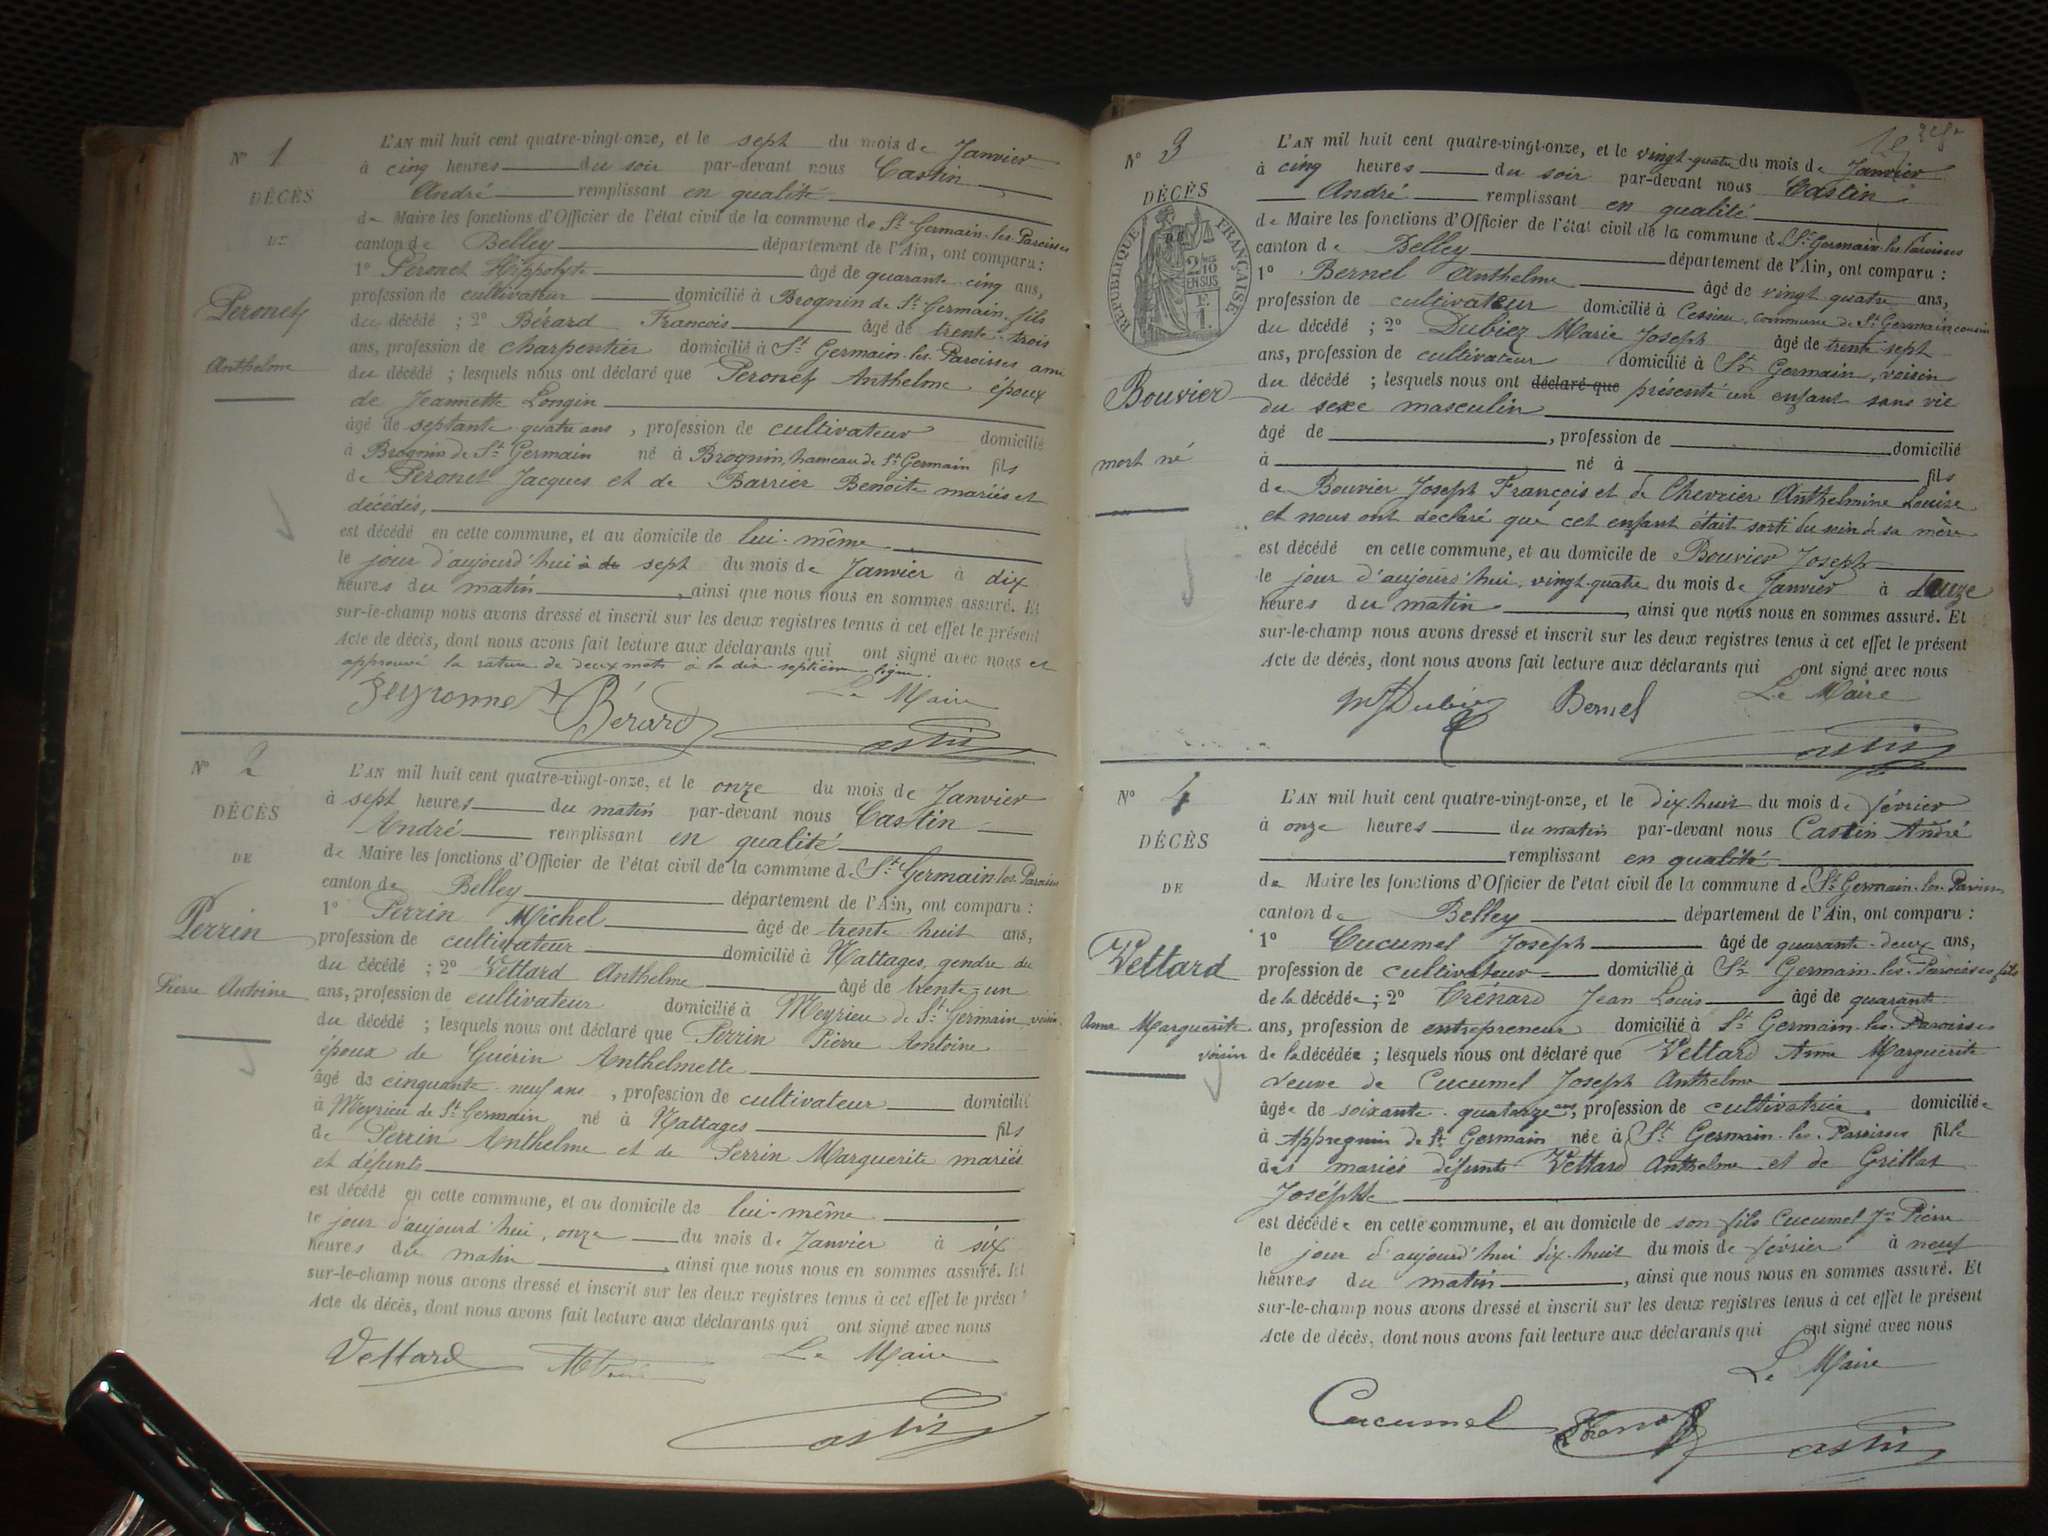 N° 1
DÉCÈS
DE
Peronet
Anthelme
L'AN mil huit cent quatre-vingt-onze, et le sept du mois de Janvier
à cinq heures du soir par-devant nous Castin
André remplissant en qualité
de Maire les fonctions d'Officier de l'état civil de la commune de St Germain-les-Paroisses
canton de Belley département de l'Ain, ont comparu :
1° Peronet Hippolyte âgé de quarante-cinq ans,
profession de cultivateur domicilié à Brognin de St Germain, fils
du décédé ; 2° Bérard François âgé de trente-trois
ans, profession de charpentier domicilié à St Germain-les-Paroisses ami
du décédé ; lesquels nous ont déclaré que Peronet Anthelme époux
de Jeannette Longin
âgé de septante quatre ans, profession de cultivateur domicilié
à Brognin de St Germain né à Brognin, hameau de St Germain fils
de Peronet Jacques et de Barrier Benoite mariés et
décédés,
est décédé en cette commune, et au domicile de lui-même
le jour d'aujourd'hui à de sept du mois de Janvier à dix
heures du matin, ainsi que nous nous en sommes assuré. Et
sur-le-champ nous avons dressé et inscrit sur les deux registres tenus à cet effet le présent
Acte de décès, dont nous avons fait lecture aux déclarants qui ont signé avec nous et
approuvé la rature de deux mots à la dix septième ligne.
Peyronnet Bérard Le Maire
Castin
N° 2
DÉCÈS
DE
Perrin
Pierre Antoine
L'AN mil huit cent quatre-vingt-onze, et le onze du mois de Janvier
à sept heures du matin par-devant nous Castin
André remplissant en qualité
de Maire les fonctions d'Officier de l'état civil de la commune de St Germain-les-Paroisses
canton de Belley département de l'Ain, ont comparu :
1° Perrin Michel âgé de trente-huit ans,
profession de cultivateur domicilié à Nattages, gendre du
du décédé ; 2° Vettard Anthelme âgé de trente-un
ans, profession de cultivateur domicilié à Meyrieu de St Germain, voisin
du décédé ; lesquels nous ont déclaré que Perrin Pierre Antoine
époux de Guérin Anthelmette
âgé de cinquante-neuf ans, profession de cultivateur domicilié
à Meyrieu de St Germain né à Nattages fils
de Perrin Anthelme et de Perrin Marguerite mariés
et défunts
est décédé en cette commune, et au domicile de lui-même
le jour d'aujourd'hui, onze du mois de Janvier à six
heures du matin, ainsi que nous nous en sommes assuré. Et
sur-le-champ nous avons dressé et inscrit sur les deux registres tenus à cet effet le présent
Acte de décès, dont nous avons fait lecture aux déclarants qui ont signé avec nous
Vettard Le Maire
Castin
N° 3
DÉCÈS
RÉPUBLIQUE FRANÇAISE
2/10 EN SUS
F. 1.
Bouvier
mort né
L'AN mil huit cent quatre-vingt-onze, et le vingt-quatre du mois de Janvier
à cinq heures du soir par-devant nous Castin
André remplissant en qualité
de Maire les fonctions d'Officier de l'état civil de la commune d St Germain-les-Paroisses
canton de Belley département de l'Ain, ont comparu :
1° Bernel Anthelme âgé de vingt quatre ans,
profession de cultivateur domicilié à Cessieu, commune de St Germain, cousin
du décédé ; 2° Dubiez Marie Joseph âgé de trente-sept
ans, profession de cultivateur domicilié à St Germain, voisin
du décédé ; lesquels nous ont déclaré que présenté un enfant sans vie
du sexe masculin
âgé de , profession de domicilié
à né à fils
de Bouvier Joseph François et de Chevrier Anthelmine Louise
et nous ont déclaré que cet enfant était sorti du sein de sa mère
est décédé en cette commune, et au domicile de Bouvier Joseph
le jour d'aujourd'hui, vingt-quatre du mois de Janvier à
heures du matin, ainsi que nous nous en sommes assuré. Et
sur-le-champ nous avons dressé et inscrit sur les deux registres tenus à cet effet le présent
Acte de décès, dont nous avons fait lecture aux déclarants qui ont signé avec nous
MJ Dubiez Bernel Le Maire
Castin
N° 4
DÉCÈS
DE
Vettard
Anne Marguerite
L'AN mil huit cent quatre-vingt-onze, et le dix-huit du mois de février
à onze heures du matin par-devant nous Castin André
remplissant en qualité
de Maire les fonctions d'Officier de l'état civil de la commune d St Germain-les-Paroisses
canton de Belley département de l'Ain, ont comparu :
1° Cucumel Joseph âgé de quarante-deux ans,
profession de cultivateur domicilié à St Germain-les-Paroisses, fils
de la décédée ; 2° Trénard Jean Louis âgé de quarante
ans, profession de entrepreneur domicilié à St Germain-les-Paroisses
voisin de la décédée ; lesquels nous ont déclaré que Vettard Anne Marguerite
veuve de Cucumel Joseph Anthelme
âgée de soixante-quatorze ans, profession de cultivatrice, domiciliée
à Appregnin de St Germain née à St Germain-les-Paroisses fille
des mariés défunts Vettard Anthelme et de Grillat
Joséphte
est décédée en cette commune, et au domicile de son fils Cucumel Jn Pierre
le jour d'aujourd'hui dix-huit du mois de février à neuf
heures du matin, ainsi que nous nous en sommes assuré. Et
sur-le-champ nous avons dressé et inscrit sur les deux registres tenus à cet effet le présent
Acte de décès, dont nous avons fait lecture aux déclarants qui ont signé avec nous
Le Maire
Cucumel Castin